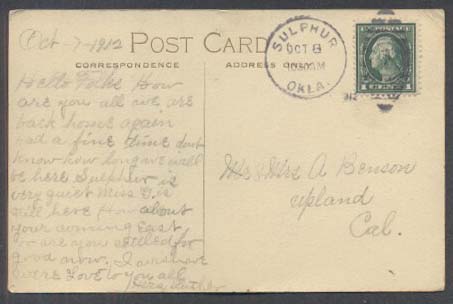 Oct - 7 - 1912
POST CARD
CORRESPONDENCE
ADDRESS ONLY
SULPHUR
OCT 8
AM
OKLA.
1 CENT 1
Hello Folks How
are you all we are
back home again
Had a fine time dont
know how long we will
be here Sulphur is
very quiet Miss G. is
still here How about
your coming East
or are you settled for
good now. I am sure
Love to you all
Mr & Mrs A Benson
upland
Cal.